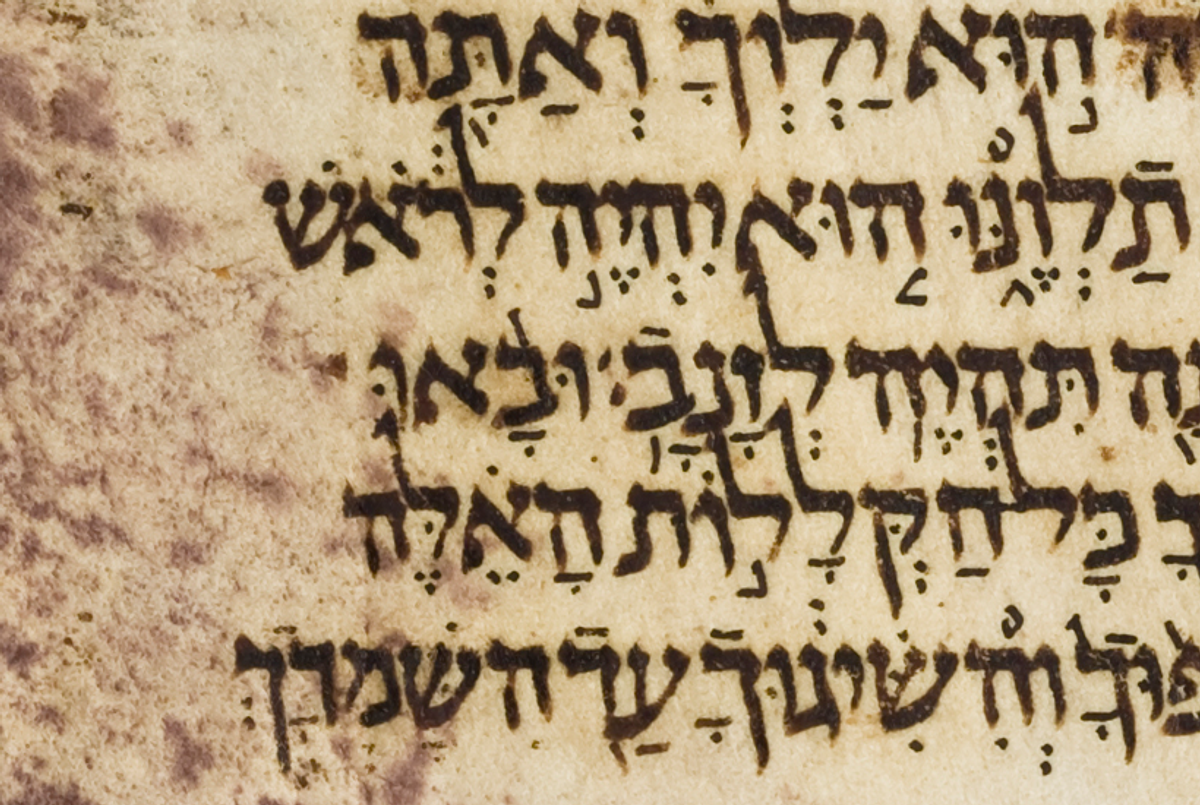 ה֣וּא יַלְוְךָ֔ וְאַתָּ֖ה
תַלְוֶ֑נּוּ ה֚וּא יִהְיֶ֣ה לְרֹ֔אשׁ
תִּהְיֶ֥ה לְזָנָֽב׃ וּבָ֨אוּ
כָּל הַקְּלָל֣וֹת הָאֵ֗לֶּה
וְהִשִּׂיג֔וּךָ עַ֖ד הִשָּׁמְדָ֑ךְ